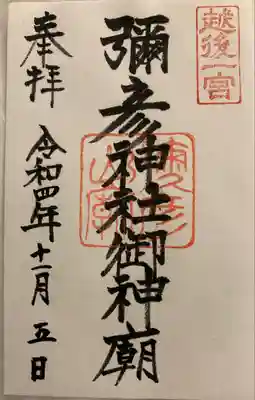 越後一宮
彌彦神社御神廟
奉拝
令和四年十一月五日